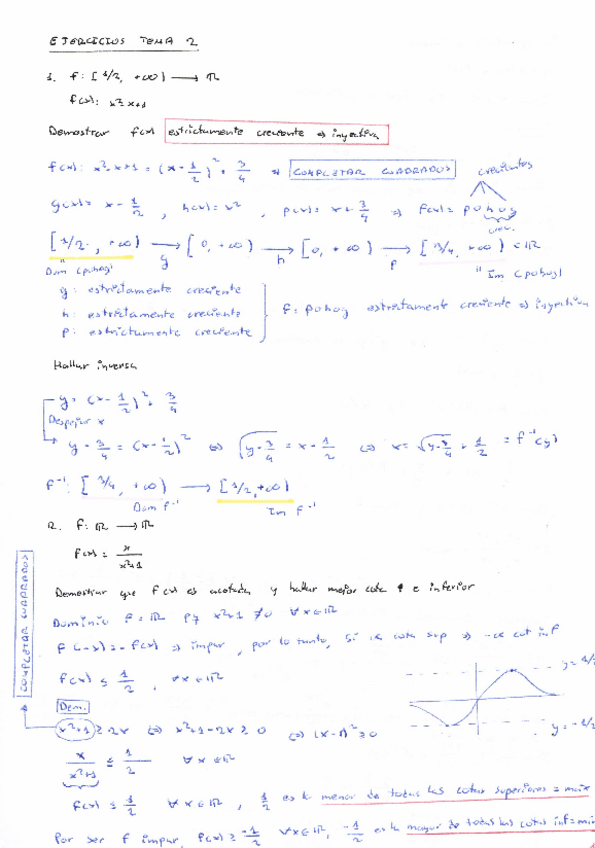 EJERCICIOS TEMA 2
1. f: [1/2, +∞) → ℝ
f(x): x²-x+1
Demostrar f(x) estrictamente creciente ⇒ inyectiva
f(x): x²-x+1 = (x - 1/2)² + 3/4 ⇒ COMPLETAR CUADRADOS
crecientes
g(x) = x - 1/2, h(x) = x², p(x) = x + 3/4 ⇒ f(x) = p∘h∘g
crec.
[1/2, +∞) → [0, +∞) → [0, +∞) → [3/4, +∞) ⊂ ℝ
g h p
Dom (p∘h∘g) Im (p∘h∘g)
g: estrictamente creciente
h: estrictamente creciente
p: estrictamente creciente
f = p∘h∘g estrictamente creciente ⇒ inyectiva
Hallar inversa
y = (x - 1/2)² + 3/4
Despejar x
y - 3/4 = (x - 1/2)² ⇔ √(y - 3/4) = x - 1/2 ⇔ x = √(y - 3/4) + 1/2 = f⁻¹(y)
f⁻¹: [3/4, +∞) → [1/2, +∞)
Dom f⁻¹ Im f⁻¹
2. f: ℝ → ℝ
f(x) = x/(x²+1)
Demostrar que f(x) es acotada y hallar mejor cota ↑ e inferior
Dominio f = ℝ pq x²+1 ≠ 0 ∀x∈ℝ
f(-x) = -f(x) ⇒ impar, por lo tanto, si α cota sup ⇒ -α cot inf
f(x) ≤ 1/2, ∀x∈ℝ
y = 1/2
y = -1/2
Dem.
COMPLETAR CUADRADOS
x²+1 ≥ 2x ⇔ x²+1-2x ≥ 0 ⇔ (x-1)² ≥ 0
x/(x²+1) ≤ 1/2 ∀x∈ℝ
f(x) ≤ 1/2 ∀x∈ℝ, 1/2 es la menor de todas las cotas superiores = máx
Por ser f impar, f(x) ≥ -1/2 ∀x∈ℝ, -1/2 es la mayor de todas las cotas inf = mín